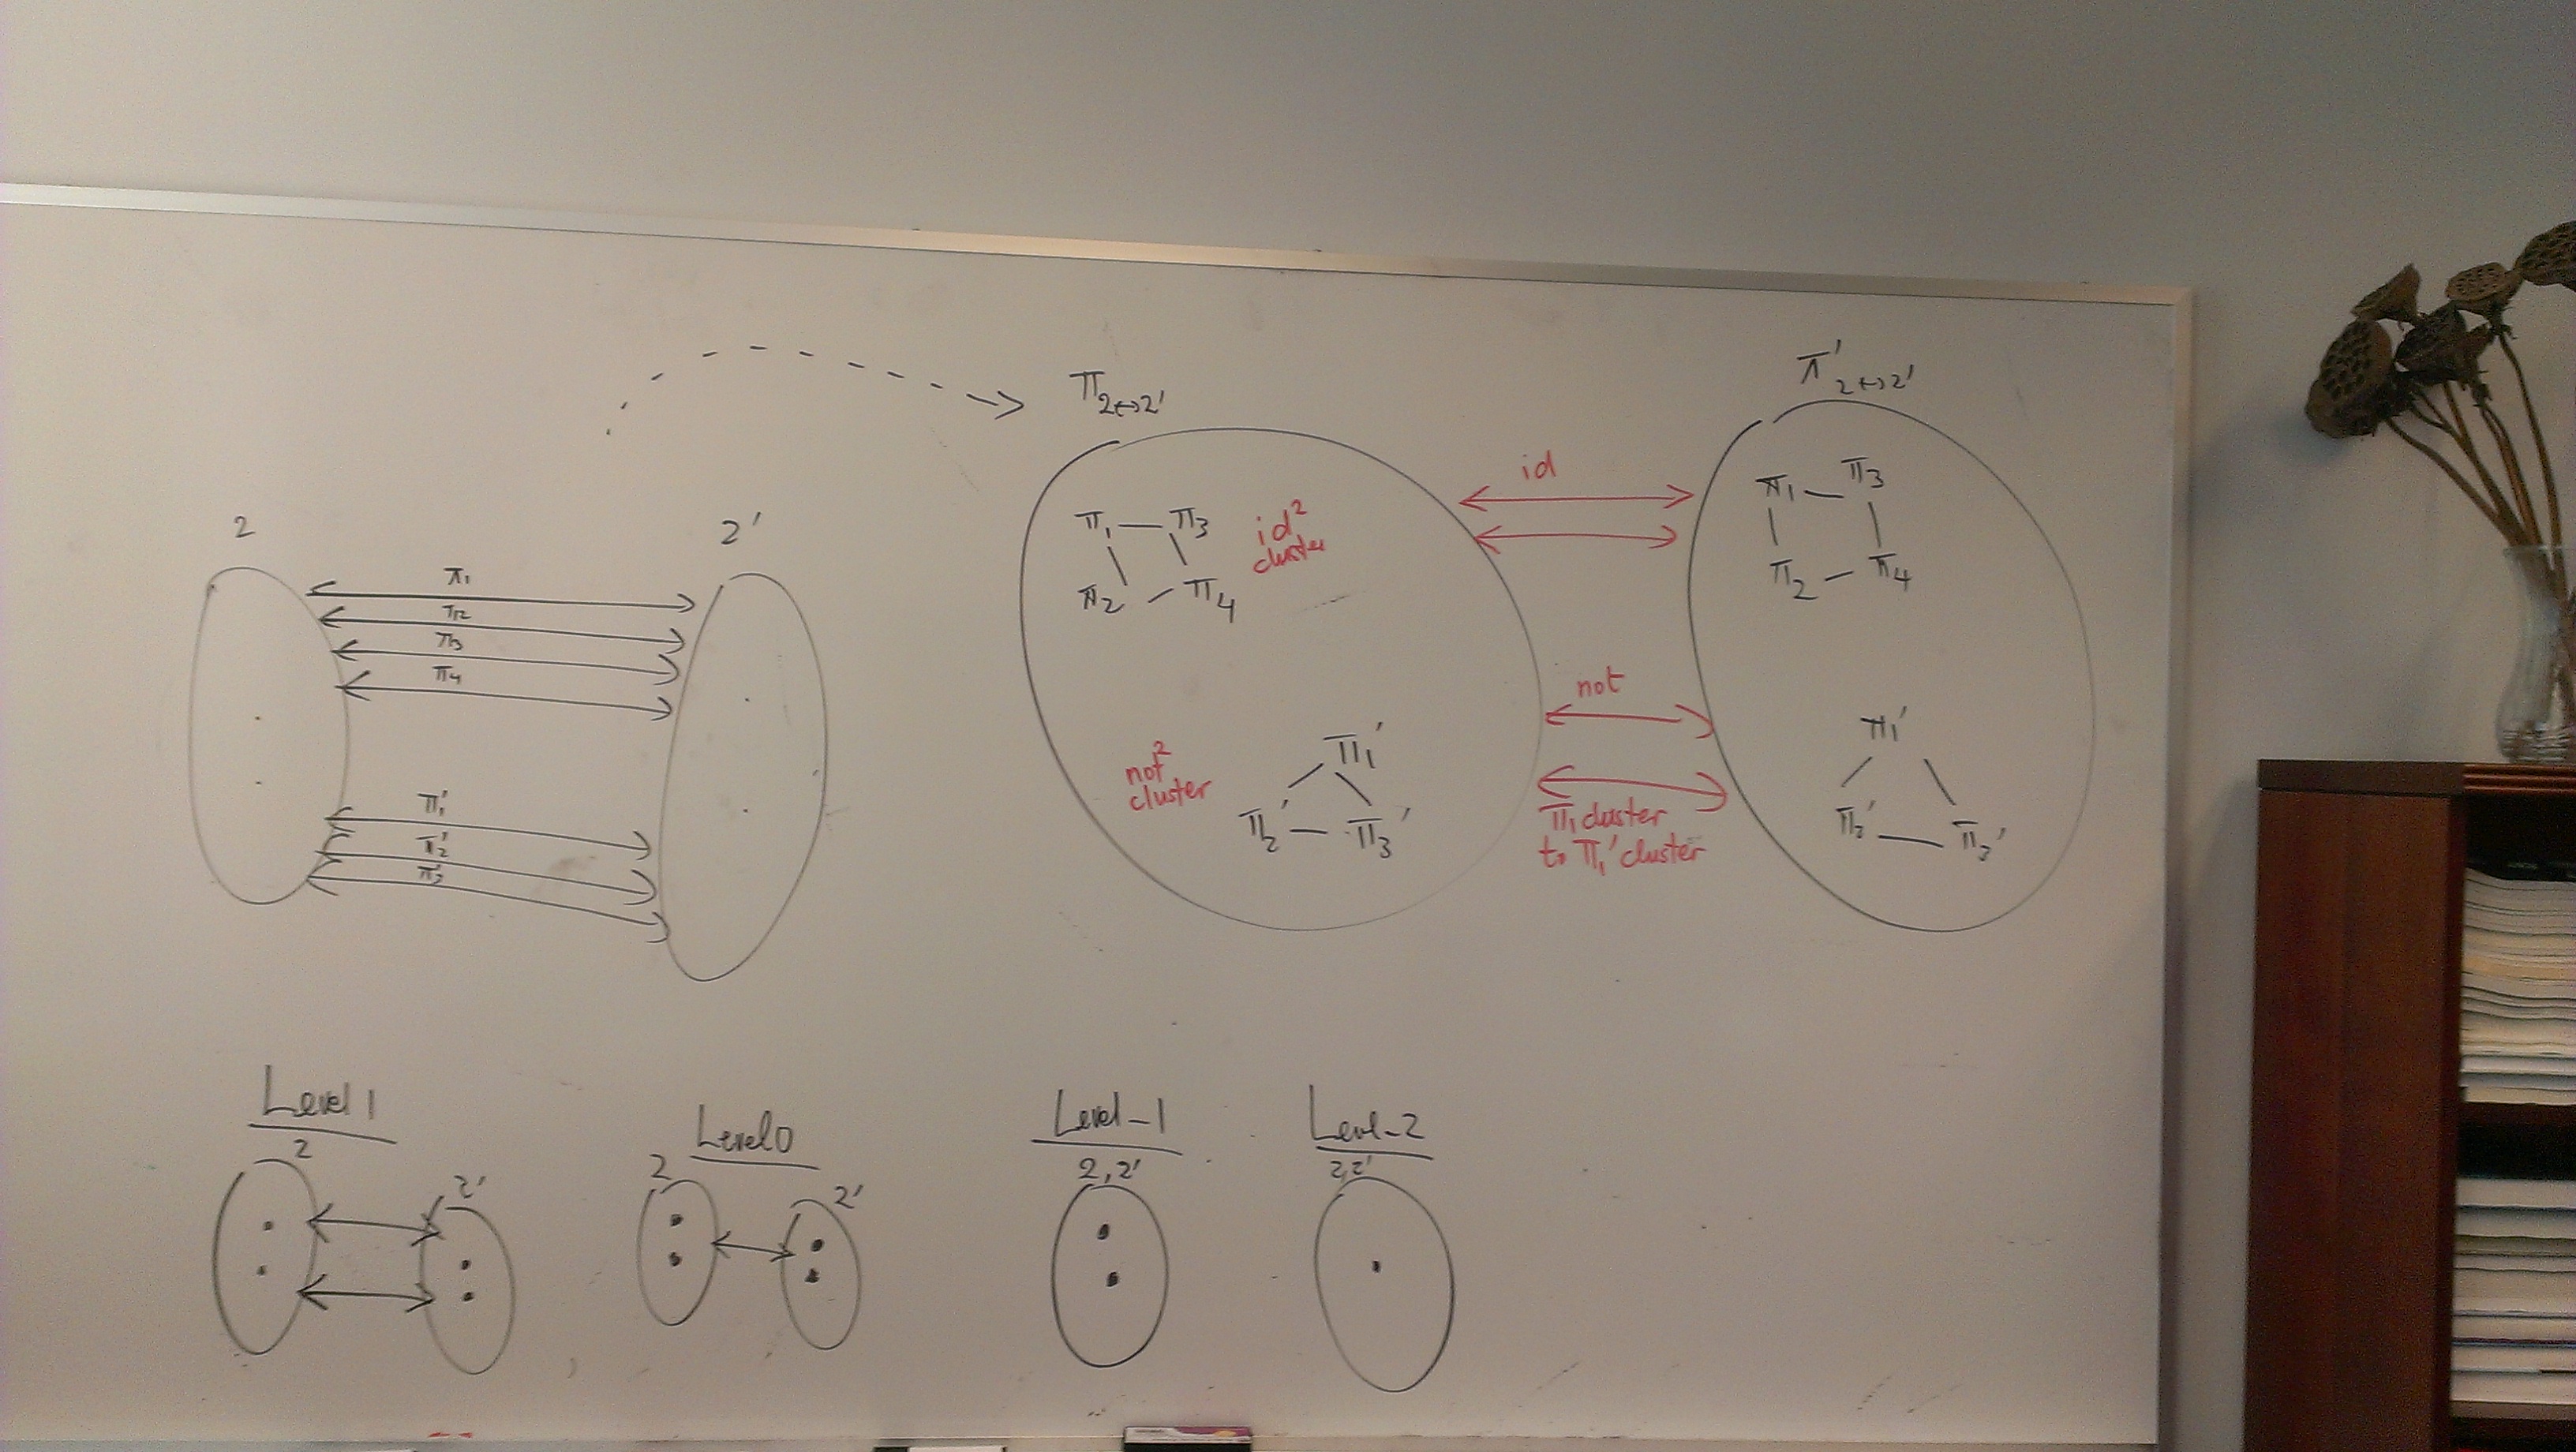 2
2'
π₁
π₂
π₃
π₄
π₁'
π₂'
π₃'
π 2↔2'
π₁ — π₃
π₂ — π₄
id² cluster
not² cluster
π₁'
π₂' — π₃'
id
not
π₁ cluster
to π₁' cluster
π' 2↔2'
π₁ — π₃
π₂ — π₄
π₁'
π₂' — π₃'
Level 1
2
2'
Level 0
2
2'
Level -1
2, 2'
Level -2
2, 2'